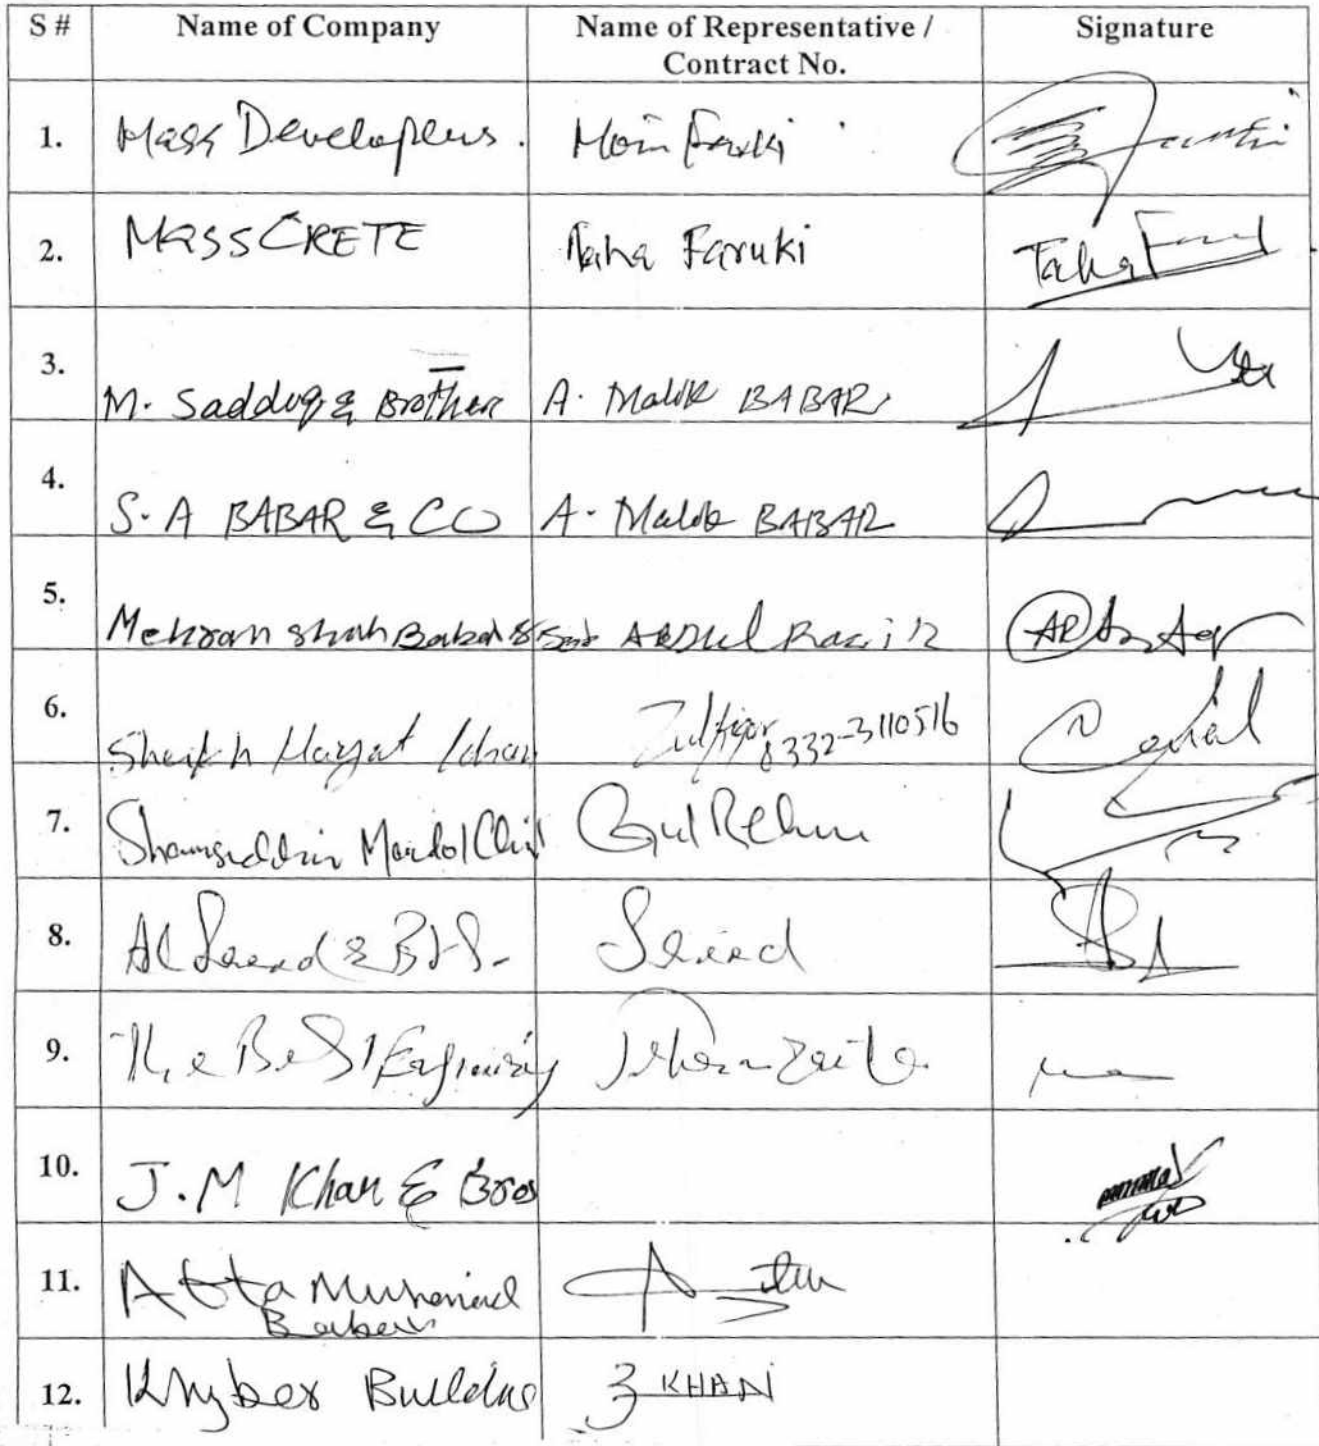 S # Name of Company Name of Representative / Contract No. Signature
1. Mass Developers. Moin Faruki
2. MASSCRETE Taha Faruki Taha
3. M. Sadduq & Brother A. Malik BABAR
4. S. A BABAR & CO A. Malik BABAR
5. Mehran Shah Babar & Abdul Raziq
6. Sheikh Hayat Khan Zulfiqar 0332-3110516
7. Shamsuddin Gul Rehm
8. Al Saeed & Saeed
9. The Best
10. J.M Khan & Bros
11. Atta Muhammad
Babar
12. Khyber Builders Z KHAN